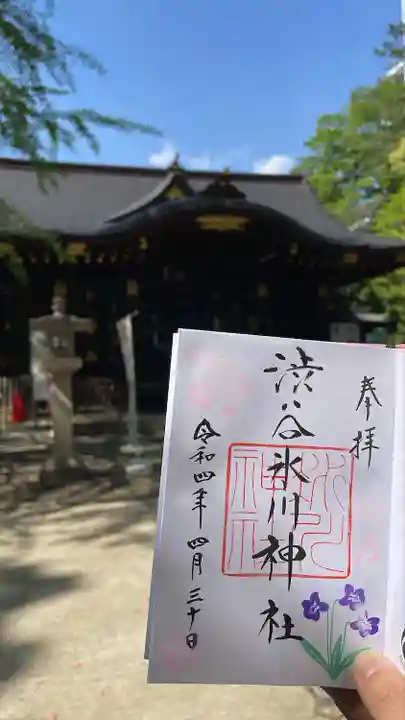 奉拝
渋谷氷川神社
令和四年四月三十日
氷川神社